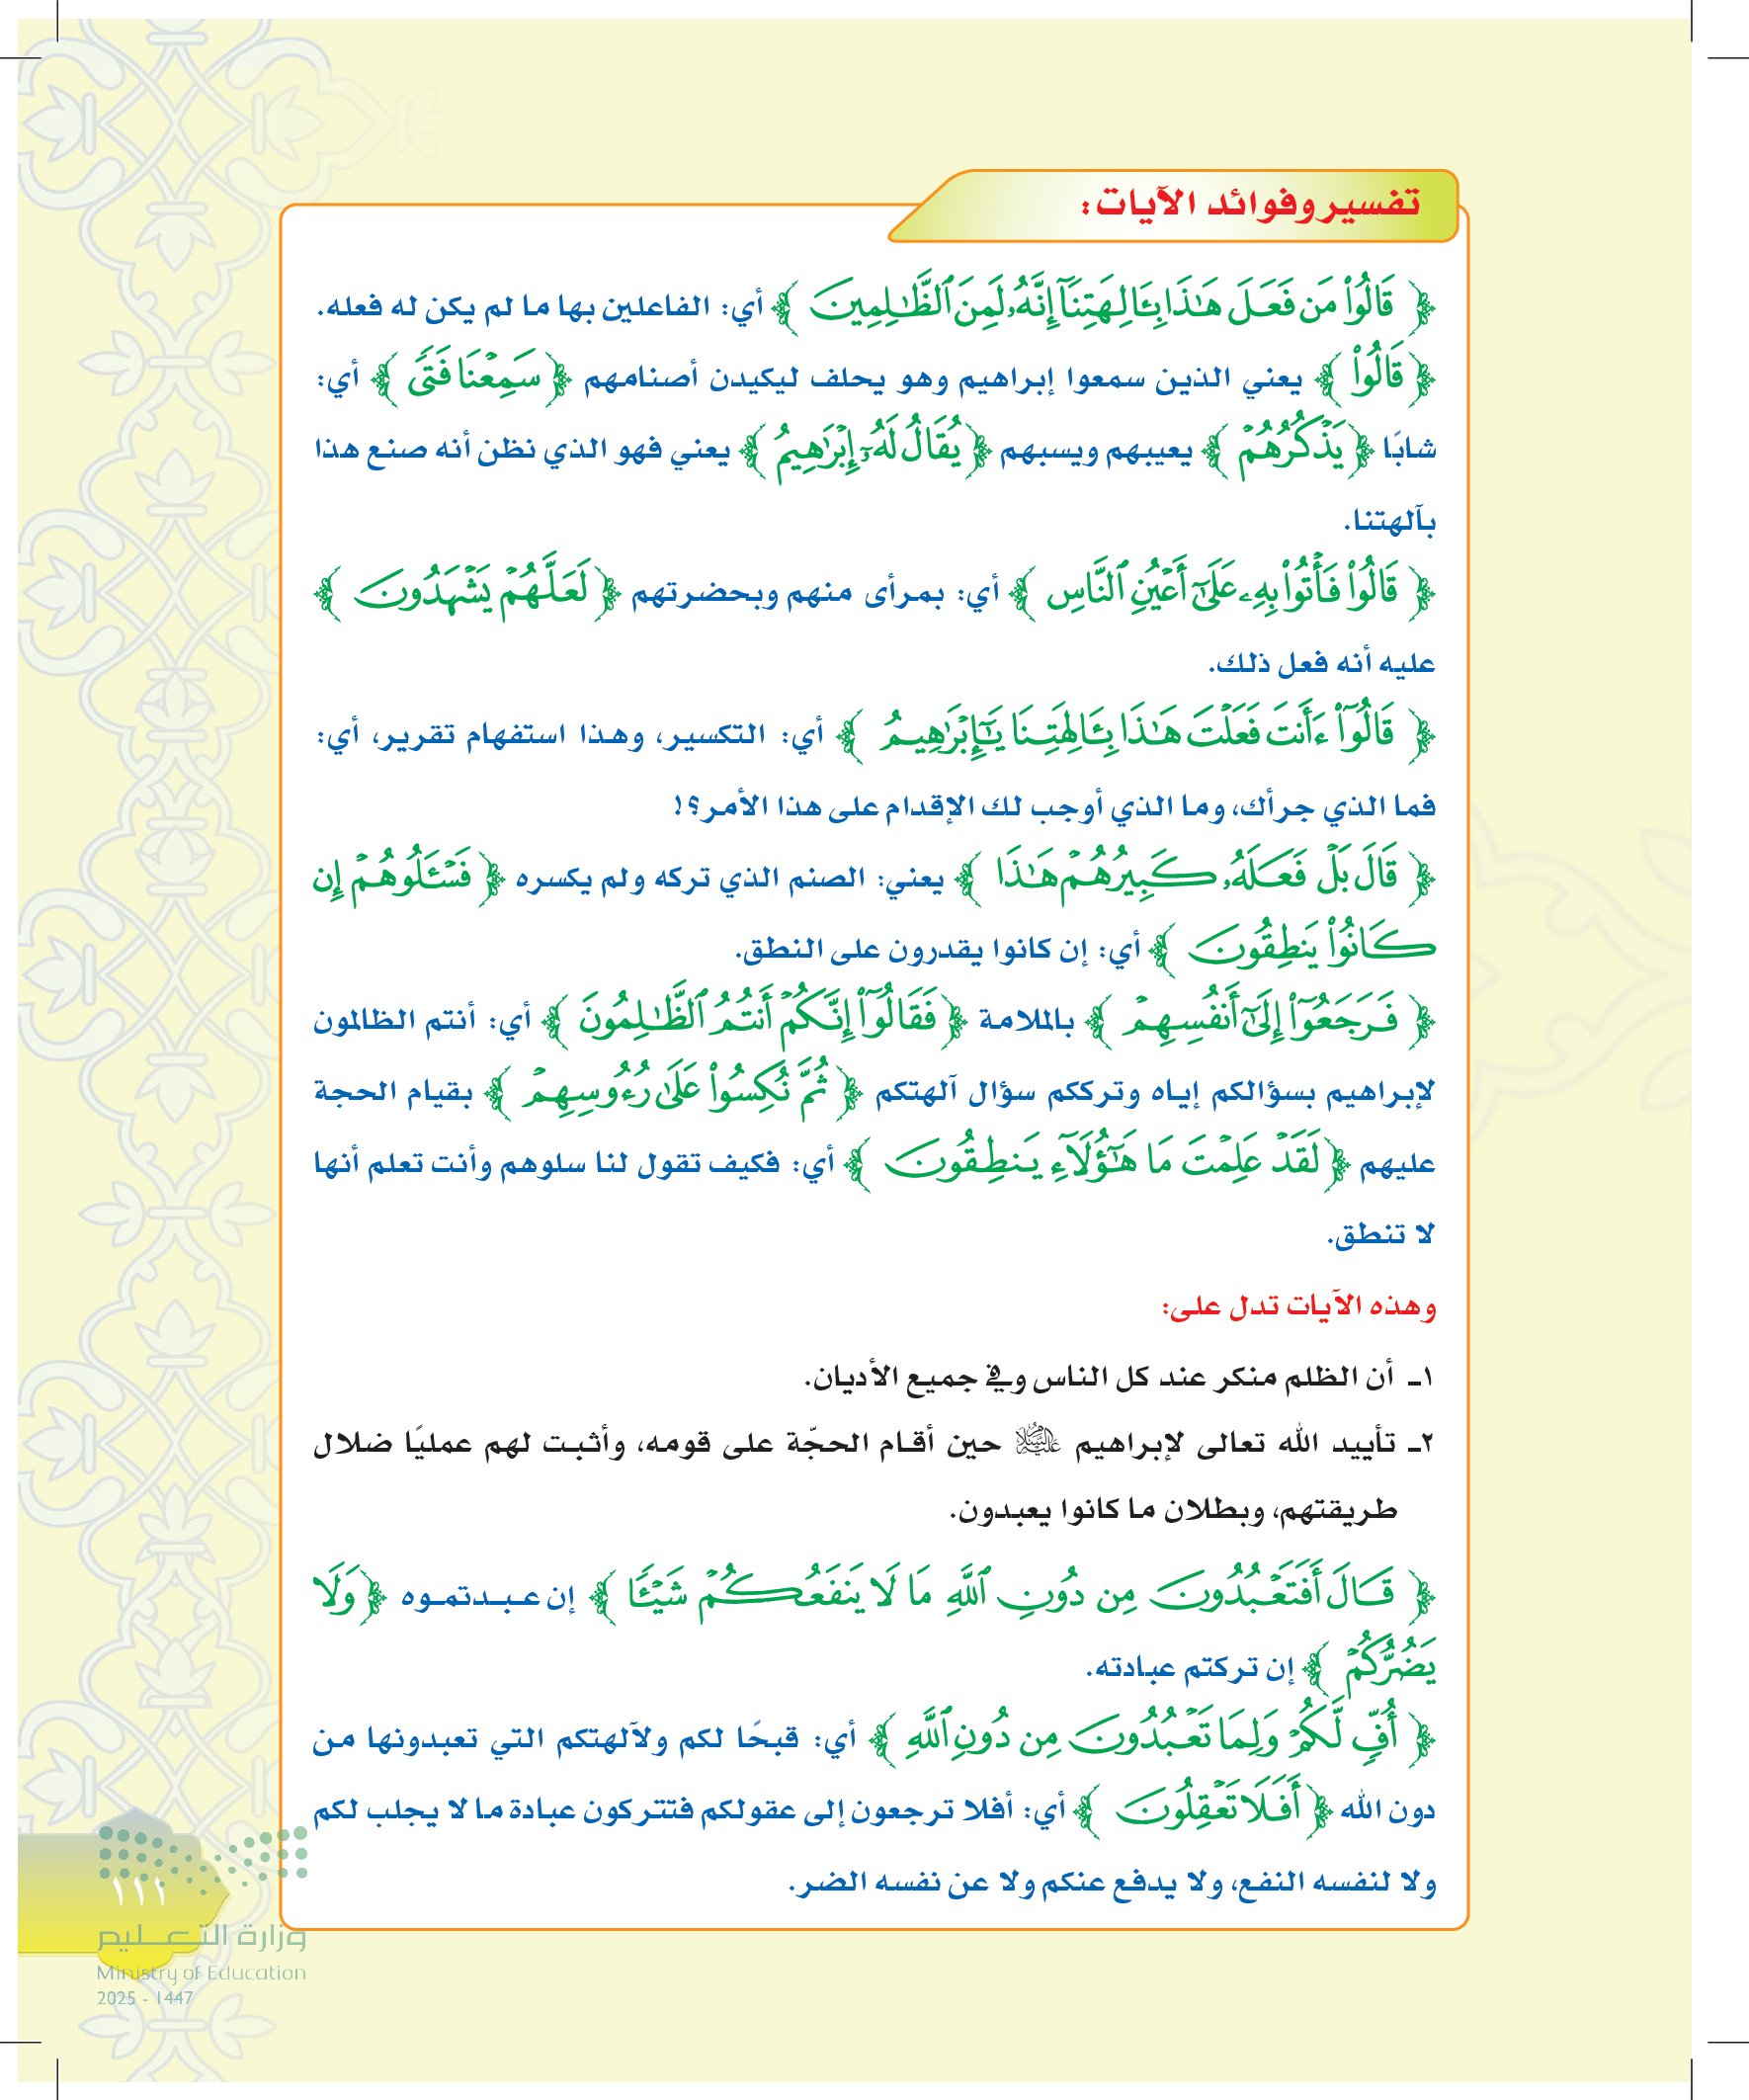 تفسير وفوائد الآيات:
﴿ قَالُوا۟ مَن فَعَلَ هَٰذَا بِـَٔالِهَتِنَآ إِنَّهُۥ لَمِنَ ٱلظَّٰلِمِينَ ﴾ أي: الفاعلين بها ما لم يكن له فعله.
﴿ قَالُوا۟ ﴾ يعني الذين سمعوا إبراهيم وهو يحلف ليكيدن أصنامهم ﴿ سَمِعْنَا فَتًى ﴾ أي:
شابًا ﴿ يَذْكُرُهُمْ ﴾ يعيبهم ويسبهم ﴿ يُقَالُ لَهُۥٓ إِبْرَٰهِيمُ ﴾ يعني فهو الذي نظن أنه صنع هذا
بآلهتنا.
﴿ قَالُوا۟ فَأْتُوا۟ بِهِۦ عَلَىٰٓ أَعْيُنِ ٱلنَّاسِ ﴾ أي: بمرأى منهم وبحضرتهم ﴿ لَعَلَّهُمْ يَشْهَدُونَ ﴾
عليه أنه فعل ذلك.
﴿ قَالُوٓا۟ ءَأَنتَ فَعَلْتَ هَٰذَا بِـَٔالِهَتِنَا يَٰٓإِبْرَٰهِيمُ ﴾ أي: التكسير، وهذا استفهام تقرير، أي:
فما الذي جرأك، وما الذي أوجب لك الإقدام على هذا الأمر؟!
﴿ قَالَ بَلْ فَعَلَهُۥ كَبِيرُهُمْ هَٰذَا ﴾ يعني: الصنم الذي تركه ولم يكسره ﴿ فَسْـَٔلُوهُمْ إِن
كَانُوا۟ يَنطِقُونَ ﴾ أي: إن كانوا يقدرون على النطق.
﴿ فَرَجَعُوٓا۟ إِلَىٰٓ أَنفُسِهِمْ ﴾ بالملامة ﴿ فَقَالُوٓا۟ إِنَّكُمْ أَنتُمُ ٱلظَّٰلِمُونَ ﴾ أي: أنتم الظالمون
لإبراهيم بسؤالكم إياه وترككم سؤال آلهتكم ﴿ ثُمَّ نُكِسُوا۟ عَلَىٰ رُءُوسِهِمْ ﴾ بقيام الحجة
عليهم ﴿ لَقَدْ عَلِمْتَ مَا هَٰٓؤُلَآءِ يَنطِقُونَ ﴾ أي: فكيف تقول لنا سلوهم وأنت تعلم أنها
لا تنطق.
وهذه الآيات تدل على:
١ـ أن الظلم منكر عند كل الناس وفي جميع الأديان.
٢ـ تأييد الله تعالى لإبراهيم عليه السلام حين أقام الحجّة على قومه، وأثبت لهم عمليًا ضلال
طريقتهم، وبطلان ما كانوا يعبدون.
﴿ قَالَ أَفَتَعْبُدُونَ مِن دُونِ ٱللَّهِ مَا لَا يَنفَعُكُمْ شَيْـًٔا ﴾ إن عبدتموه ﴿ وَلَا
يَضُرُّكُمْ ﴾ إن تركتم عبادته.
﴿ أُفٍّ لَّكُمْ وَلِمَا تَعْبُدُونَ مِن دُونِ ٱللَّهِ ﴾ أي: قبحًا لكم ولآلهتكم التي تعبدونها من
دون الله ﴿ أَفَلَا تَعْقِلُونَ ﴾ أي: أفلا ترجعون إلى عقولكم فتتركون عبادة ما لا يجلب لكم
ولا لنفسه النفع، ولا يدفع عنكم ولا عن نفسه الضر.
١١١
وزارة التعليم
Ministry of Education
2025 - 1447